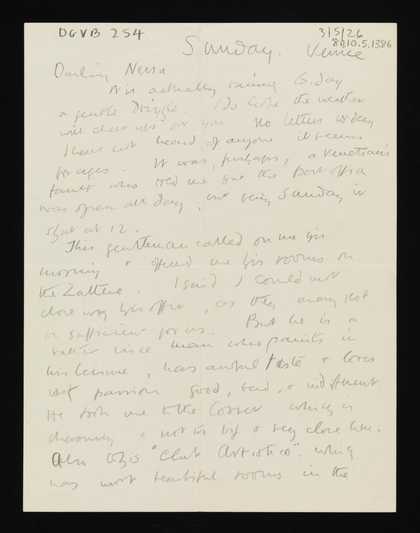 DGVB 254
3/5/26
8010.5.1386
Sunday. Venice
Darling Nessa
It is actually raining to day
a gentle drizzle. I do hope the weather
will clear up for you. No letters to day
I have not heard of anyone it seems
for ages. It was, perhaps, a Venetian's
fault who told me that the Post office
was open all day, but being Sunday it
shut at 12.
This gentleman called on me this
morning & offered me his rooms on
the Zattere. I said I could not
close with his offer, as they may not
be sufficient for us. But he is a
rather nice man who paints in
his leisure, has awful taste & loves
with passion good, bad, & indifferent
He took me to the Correr which is
charming & not too big & very close here.
Also to his "Club Artistico" which
has most beautiful rooms in the